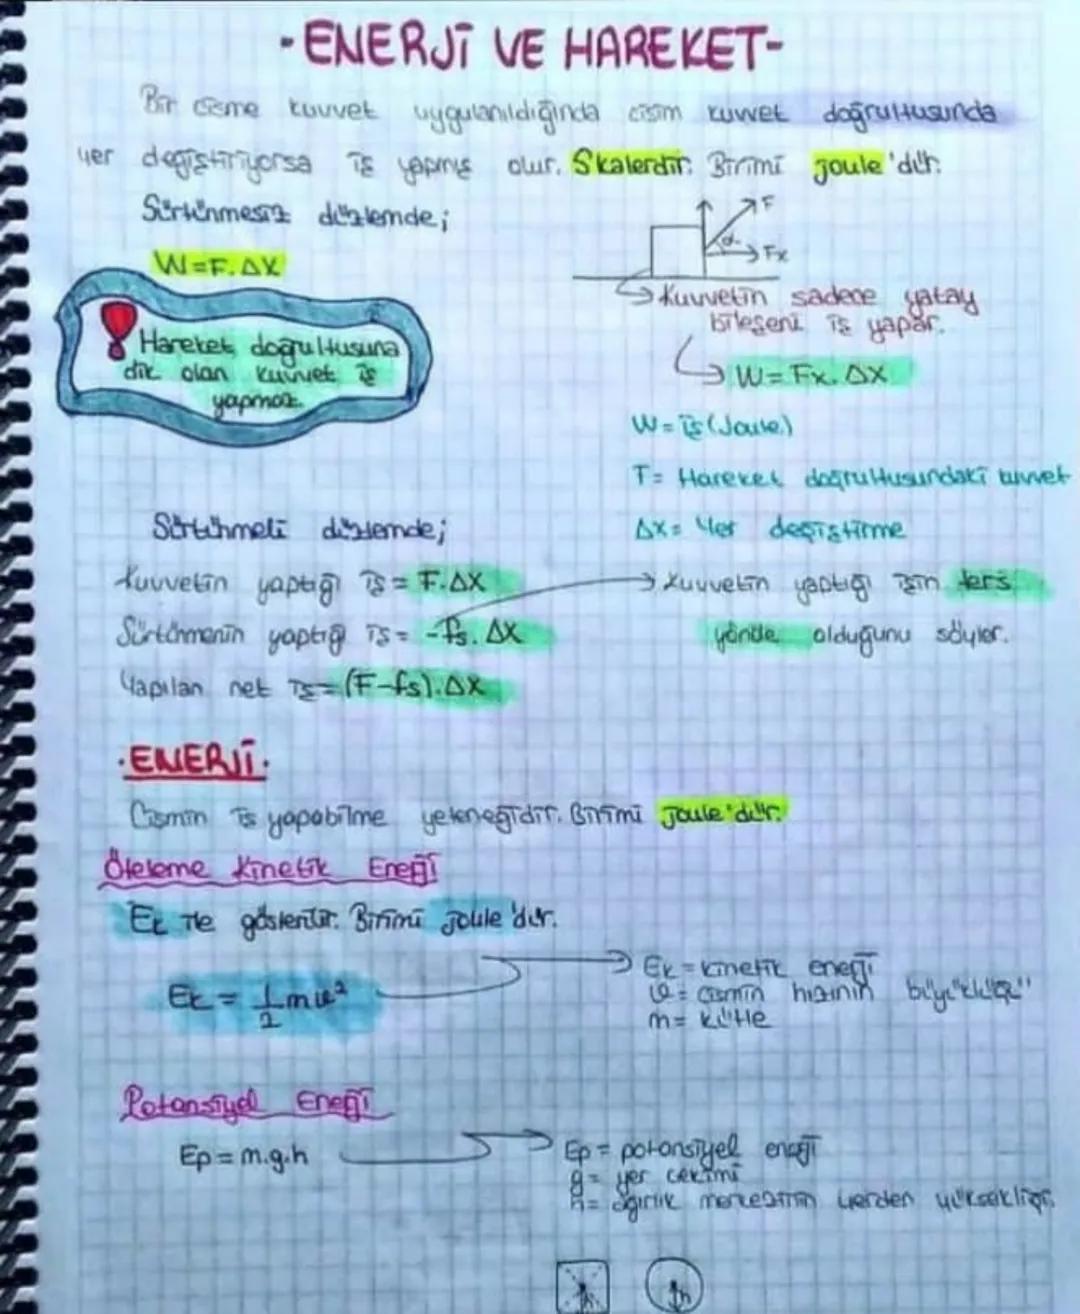 -ENERJİ VE HAREKET-
Bir cisme kuvvet uygulanıldığında cisim kuvvet doğrultusunda
yer değiştiriyorsa iş yapmış olur. Skalerdir. Birimi joule'dür.
Sürtünmesiz düzlemde;
W=F.ΔX
F
α
Fx
Kuvvetin sadece yatay
bileşeni iş yapar.
W=Fx.ΔX
! Hareket doğrultusuna
dik olan kuvvet iş
yapmaz.
W=İş (Joule)
T= Hareket doğrultusundaki kuvvet
ΔX= Yer değiştirme
Sürtünmeli düzlemde;
Kuvvetin yaptığı iş= F.ΔX
Sürtünmenin yaptığı iş= -fs.ΔX
Yapılan net iş=(F-fs).ΔX
Kuvvetin yaptığı işin ters
yönde olduğunu söyler.
·ENERJİ·
Cismin iş yapabilme yeteneğidir. Birimi joule'dür.
Öteleme Kinetik Enerji
Ek ile gösterilir. Birimi joule'dür.
Ek = 1/2 mv²
Ek=kinetik enerji
v= cismin hızının büyüklüğü
m= kütle
Potansiyel Enerji
Ep=m.g.h
Ep= potansiyel enerji
g= yer çekimi
h= ağırlık merkezinin yerden yüksekliği.
h
h